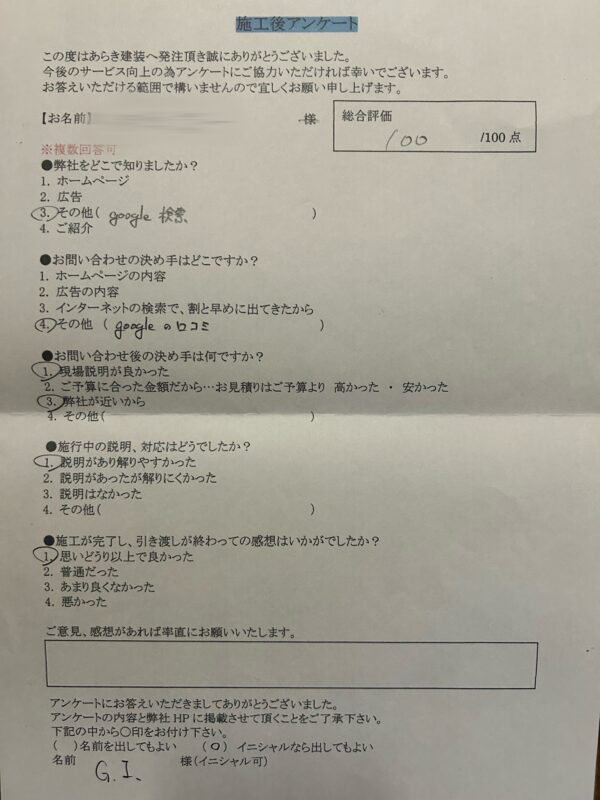 施工後アンケート
この度はあらき建装へ発注頂き誠にありがとうございました。
今後のサービス向上の為アンケートにご協力いただければ幸いでございます。
お答えいただける範囲で構いませんので宜しくお願い申し上げます。
【お名前】 様
総合評価
100 /100点
※複数回答可
●弊社をどこで知りましたか？
1. ホームページ
2. 広告
3. その他( google 検索 )
4. ご紹介
●お問い合わせの決め手はどこですか？
1. ホームページの内容
2. 広告の内容
3. インターネットの検索で、割と早めに出てきたから
4. その他 ( googleの口コミ )
●お問い合わせ後の決め手は何ですか？
1. 現場説明が良かった
2. ご予算に合った金額だから…お見積りはご予算より 高かった ・ 安かった
3. 弊社が近いから
4. その他( )
●施行中の説明、対応はどうでしたか？
1. 説明があり解りやすかった
2. 説明があったが解りにくかった
3. 説明はなかった
4. その他( )
●施工が完了し、引き渡しが終わっての感想はいかがでしたか？
1. 思いどうり以上で良かった
2. 普通だった
3. あまり良くなかった
4. 悪かった
ご意見、感想があれば率直にお願いいたします。
アンケートにお答えいただきましてありがとうございました。
アンケートの内容と弊社HPに掲載させて頂くことをご了承下さい。
下記の中から〇印をお付け下さい。
( )名前を出してもよい (○) イニシャルなら出してもよい
名前 G.I. 様(イニシャル可)